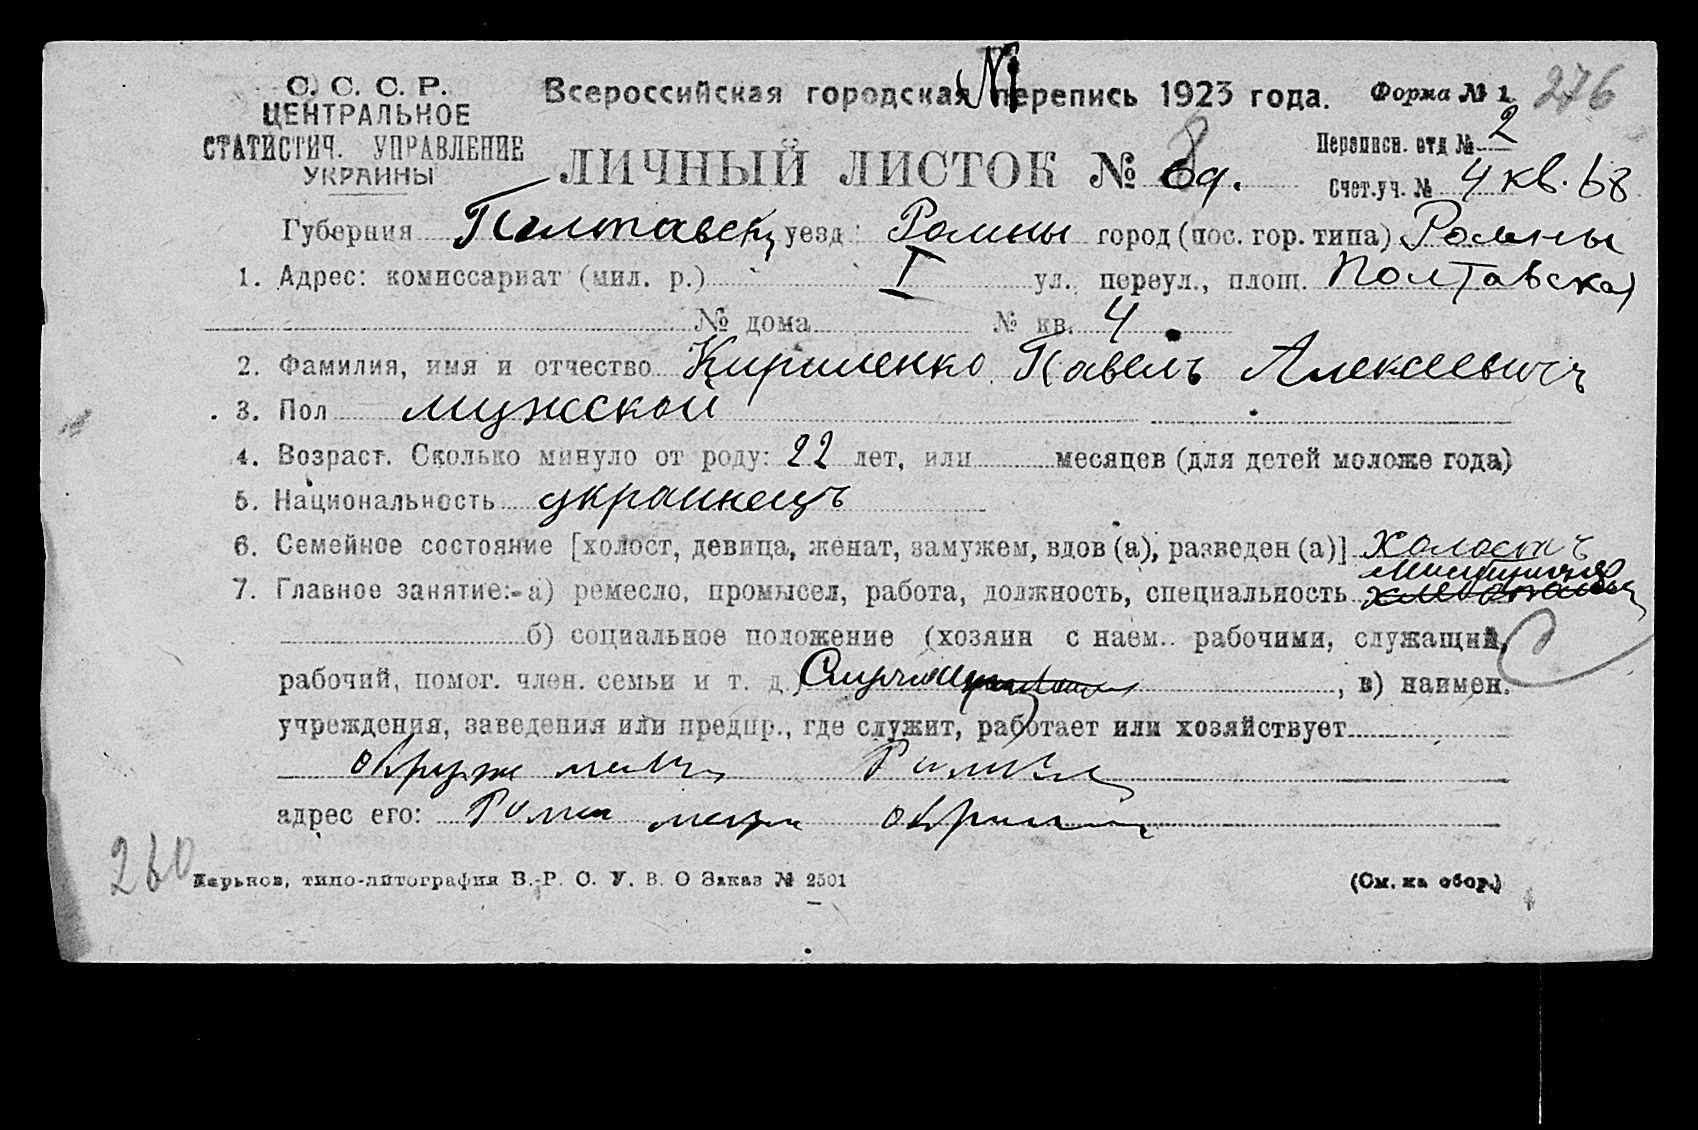 С. С. С. Р.
ЦЕНТРАЛЬНОЕ
СТАТИСТИЧ. УПРАВЛЕНИЕ
УКРАИНЫ
Всероссийская городская перепись 1923 года.
Форма № 1. 276
Переписн. отд № 2
ЛИЧНЫЙ ЛИСТОК №
Счет.уч. № 4 кв. 68
Губерния Полтавск уезд: Ромны город (пос. гор. типа) Ромны
1. Адрес: комиссариат (мил. р.) I ул. переул., площ. Полтавская
№ дома № кв. 4
2. Фамилия, имя и отчество Кириленко Павелъ Алексеевичъ
3. Пол мужской
4. Возраст. Сколько минуло от роду: 22 лет, или месяцев (для детей моложе года)
5. Национальность украинецъ
6. Семейное состояние [холост, девица, женат, замужем, вдов (а), разведен (а)] холостъ
7. Главное занятие:- а) ремесло, промысел, работа, должность, специальность
б) социальное положение (хозяин с наем. рабочими, служащий,
рабочий, помог. член. семьи и т. д.) , в) наимен.
учреждения, заведения или предпр., где служит, работает или хозяйствует
адрес его:
260
Харьков, типо-литография В.-Р. С. У. В. О Заказ № 2501
(См. на обор.)